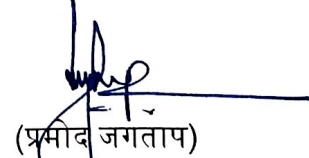 (प्रमोद जगताप)